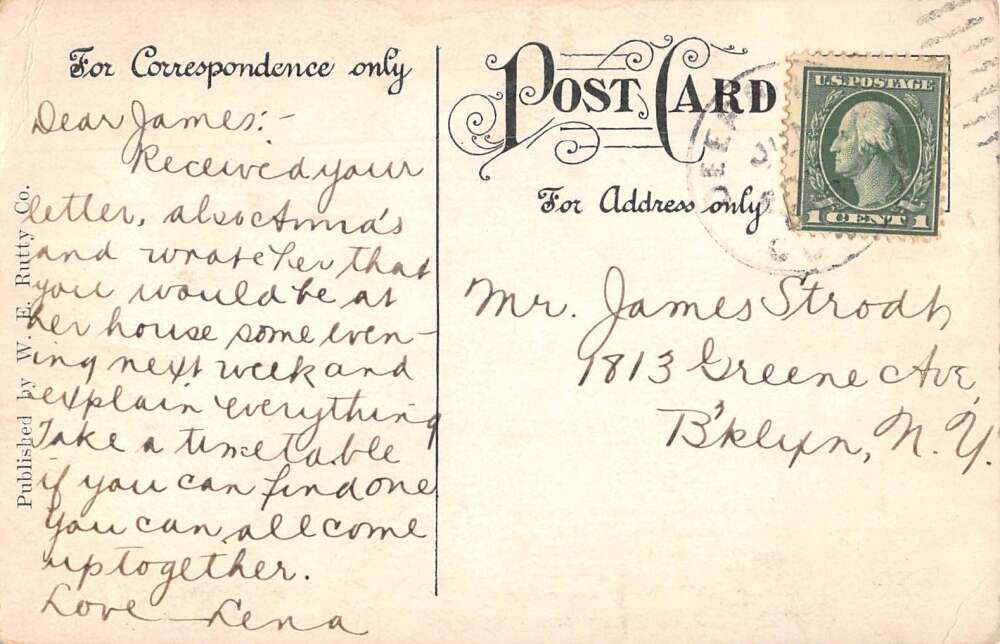 For Correspondence only
Dear James:-
Received your
letter, also Anna's
and wrote her that
you would be at
her house some even-
ing next week and
explain everything
Take a timetable
if you can find one
you can all come
up together.
Love Lena
Published by W. E. Rutty Co.
POST CARD
For Address only
U.S. POSTAGE
1 CENT 1
Mr. James Strodt
1813 Greene Ave,
B'klyn, N.Y.